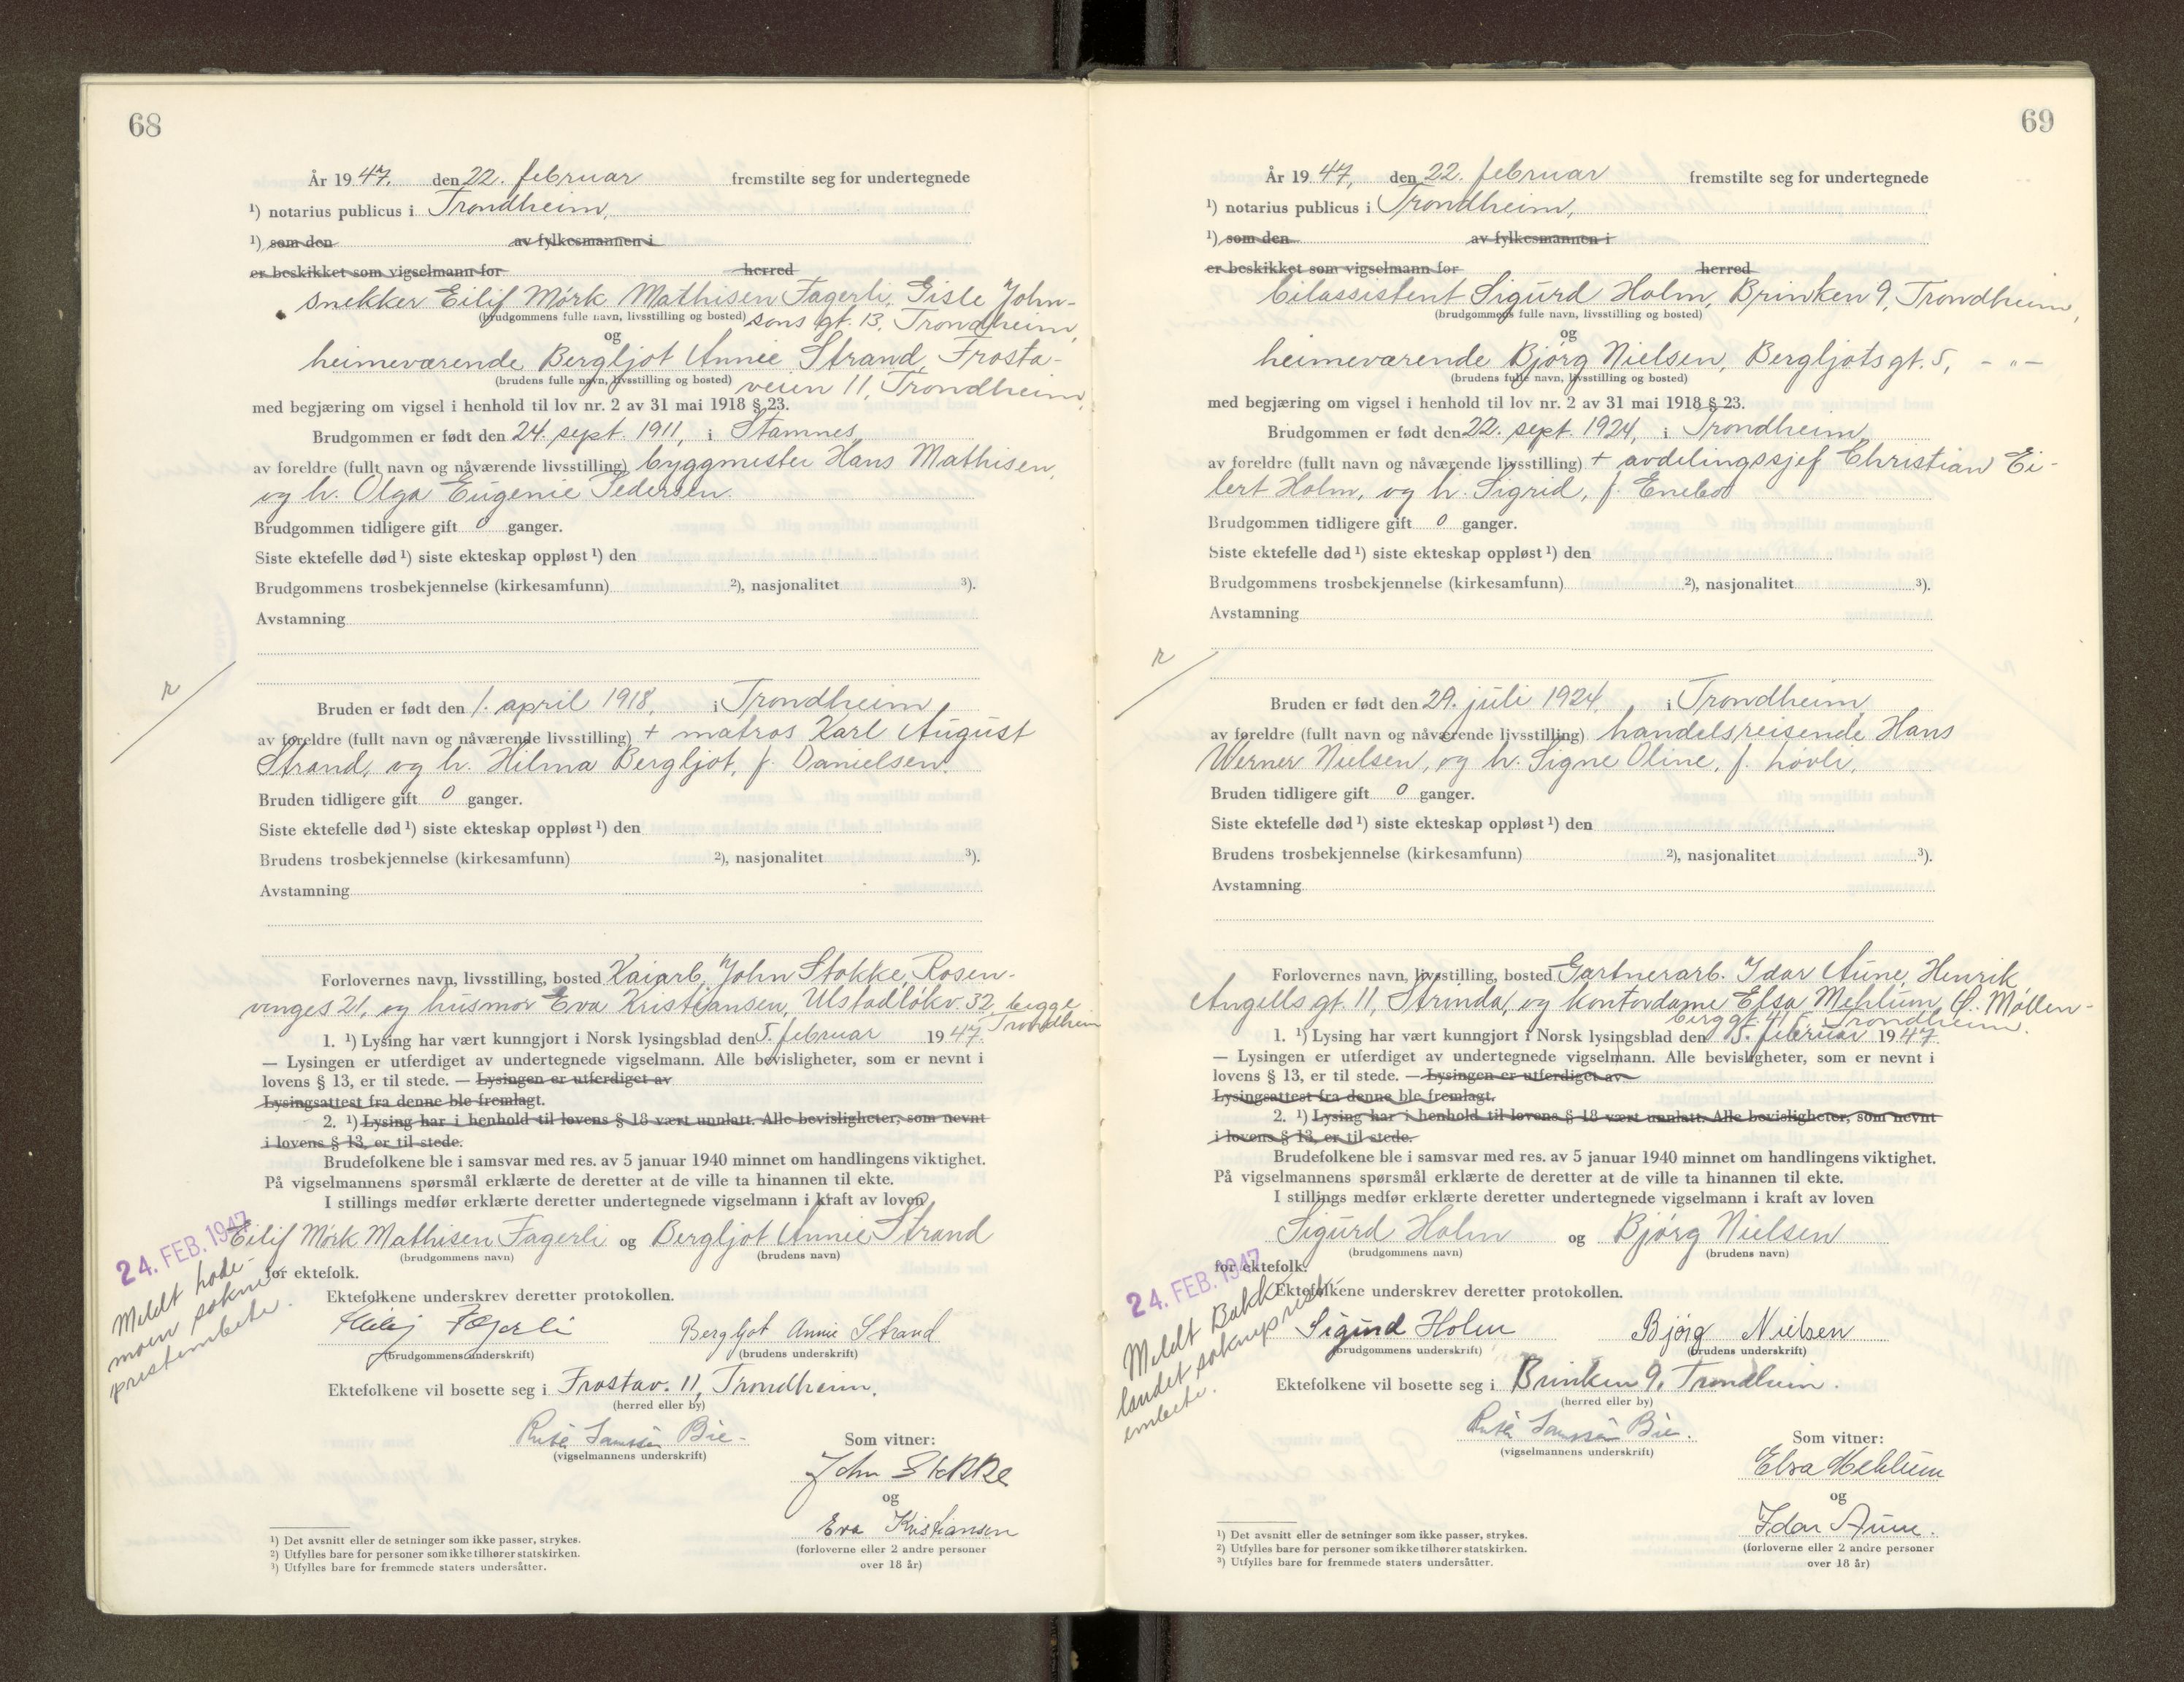 68
År 19 47. den 22. februar fremstilte seg for undertegnede
¹) notarius publicus i Trondheim,
¹) som den av fylkesmannen i
er beskikket som vigselmann for herred
snekker Eilif Mørk Mathisen Fagerli, Gisle John-
(brudgommens fulle navn, livsstilling og bosted) sons gt. 13, Trondheim,
og
heimeværende Bergljot Annie Strand, Frosta-
(brudens fulle navn, livsstilling og bosted) veien 11, Trondheim,
med begjæring om vigsel i henhold til lov nr. 2 av 31 mai 1918 § 23.
Brudgommen er født den 24. sept. 1911, i Stamnes,
av foreldre (fullt navn og nåværende livsstilling) byggmester Hans Mathisen,
og h. Olga Eugenie Pedersen.
Brudgommen tidligere gift 0 ganger.
Siste ektefelle død ¹) siste ekteskap oppløst ¹) den
Brudgommens trosbekjennelse (kirkesamfunn) ²), nasjonalitet ³).
Avstamning
r
Bruden er født den 1. april 1918, i Trondheim
av foreldre (fullt navn og nåværende livsstilling) + matros Karl August
Strand, og h. Hilma Bergljot, f. Danielsen.
Bruden tidligere gift 0 ganger.
Siste ektefelle død ¹) siste ekteskap oppløst ¹) den
Brudens trosbekjennelse (kirkesamfunn) ²), nasjonalitet ³).
Avstamning
Forlovernes navn, livsstilling, bosted Kaiarb. John Stokke, Rosen-
vinges 21, og husmor Eva Kristiansen, Ulstadløkv. 32, begge
Trondheim
1. ¹) Lysing har vært kunngjort i Norsk lysingsblad den 5. februar 19 47.
— Lysingen er utferdiget av undertegnede vigselmann. Alle bevisligheter, som er nevnt i
lovens § 13, er til stede. — Lysingen er utferdiget av
Lysingsattest fra denne ble fremlagt.
2. ¹) Lysing har i henhold til lovens § 18 vært unnlatt. Alle bevisligheter, som nevnt
i lovens § 13, er til stede.
Brudefolkene ble i samsvar med res. av 5 januar 1940 minnet om handlingens viktighet.
På vigselmannens spørsmål erklærte de deretter at de ville ta hinannen til ekte.
I stillings medfør erklærte deretter undertegnede vigselmann i kraft av loven
Eilif Mørk Mathisen Fagerli og Bergljot Annie Strand
(brudgommens navn) (brudens navn)
for ektefolk.
24. FEB. 1947
Meldt hode-
moen sokne-
prestembete.
Ektefolkene underskrev deretter protokollen.
Eilif Fagerli Bergljot Annie Strand
(brudgommens underskrift) (brudens underskrift)
Ektefolkene vil bosette seg i Frostav. 11, Trondheim.
(herred eller by)
Bie
(vigselmannens underskrift)
Som vitner:
John Stokke
og
Eva Kristiansen
(forloverne eller 2 andre personer
over 18 år)
¹) Det avsnitt eller de setninger som ikke passer, strykes.
²) Utfylles bare for personer som ikke tilhører statskirken.
³) Utfylles bare for fremmede staters undersåtter.
69
År 19 47, den 22. februar fremstilte seg for undertegnede
¹) notarius publicus i Trondheim,
¹) som den av fylkesmannen i
er beskikket som vigselmann for herred
bilassistent Sigurd Holm, Brinken 9, Trondheim,
(brudgommens fulle navn, livsstilling og bosted)
og
heimeværende Bjørg Nielsen, Bergljots gt. 5, - " -
(brudens fulle navn, livsstilling og bosted)
med begjæring om vigsel i henhold til lov nr. 2 av 31 mai 1918 § 23.
Brudgommen er født den 22. sept. 1924, i Trondheim
av foreldre (fullt navn og nåværende livsstilling) + avdelingssjef Christian Ei-
lert Holm, og h. Sigrid, f. Enebo
Brudgommen tidligere gift 0 ganger.
Siste ektefelle død ¹) siste ekteskap oppløst ¹) den
Brudgommens trosbekjennelse (kirkesamfunn) ²), nasjonalitet ³).
Avstamning
r
Bruden er født den 29. juli 1924, i Trondheim
av foreldre (fullt navn og nåværende livsstilling) handelsreisende Hans
Werner Nielsen, og h. Signe Oline, f. Løvli.
Bruden tidligere gift 0 ganger.
Siste ektefelle død ¹) siste ekteskap oppløst ¹) den
Brudens trosbekjennelse (kirkesamfunn) ²), nasjonalitet ³).
Avstamning
Forlovernes navn, livsstilling, bosted Gartnerarb. Idar Aune, Henrik
Angells gt. 11, Strinda, og kontordame Elsa Mehlum, C. Møllen-
berg gt. 41 Trondheim.
1. ¹) Lysing har vært kunngjort i Norsk lysingsblad den 5. februar 19 47.
— Lysingen er utferdiget av undertegnede vigselmann. Alle bevisligheter, som er nevnt i
lovens § 13, er til stede. — Lysingen er utferdiget av
Lysingsattest fra denne ble fremlagt.
2. ¹) Lysing har i henhold til lovens § 18 vært unnlatt. Alle bevisligheter, som nevnt
i lovens § 13, er til stede.
Brudefolkene ble i samsvar med res. av 5 januar 1940 minnet om handlingens viktighet.
På vigselmannens spørsmål erklærte de deretter at de ville ta hinannen til ekte.
I stillings medfør erklærte deretter undertegnede vigselmann i kraft av loven
Sigurd Holm og Bjørg Nielsen
(brudgommens navn) (brudens navn)
for ektefolk.
24. FEB. 1947
Meldt Bakk-
landet sokneprest-
embete.
Ektefolkene underskrev deretter protokollen.
Sigurd Holm Bjørg Nielsen
(brudgommens underskrift) (brudens underskrift)
Ektefolkene vil bosette seg i Brinken 9, Trondheim.
(herred eller by)
Bie.
(vigselmannens underskrift)
Som vitner:
Elsa Mehlum
og
Idar Aune.
(forloverne eller 2 andre personer
over 18 år)
¹) Det avsnitt eller de setninger som ikke passer, strykes.
²) Utfylles bare for personer som ikke tilhører statskirken.
³) Utfylles bare for fremmede staters undersåtter.